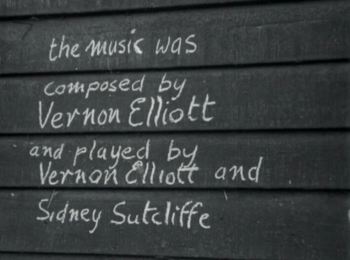 the music was
composed by
Vernon Elliott
and played by
Vernon Elliott and
Sidney Sutcliffe